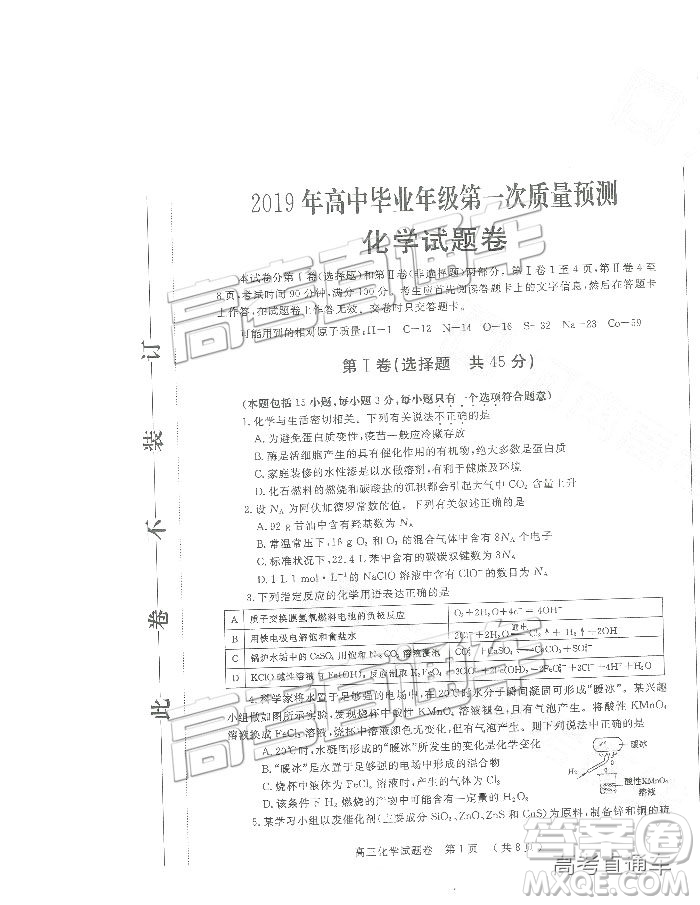 2019年高中毕业年级第一次质量预测
化学试题卷
本试卷分第Ⅰ卷(选择题)和第Ⅱ卷(非选择题)两部分，第Ⅰ卷1至4页，第Ⅱ卷4至
8页，考试时间90分钟，满分100分。考生应首先阅读答题卡上的文字信息，然后在答题卡
上作答，在试题卷上作答无效。交卷时只交答题卡。
可能用到的相对原子质量:H-1 C-12 N-14 O-16 S-32 Na-23 Co-59
第Ⅰ卷(选择题 共45分)
(本题包括15小题，每小题3分，每小题只有一个选项符合题意)
1.化学与生活密切相关。下列有关说法不正确的是
A.为避免蛋白质变性，疫苗一般应冷藏存放
B.酶是活细胞产生的具有催化作用的有机物，绝大多数酶是蛋白质
C.家庭装修的水性漆是以水做溶剂，有利于健康及环境
D.化石燃料的燃烧和碳酸盐的沉积也会引起大气中CO₂含量上升
2.设NA为阿伏加德罗常数的值。下列有关叙述正确的是
A.92 g 甘油中含有羟基数为NA
B.常温常压下，16 g O₂ 和 O₃ 的混合气体中含有8NA个电子
C.标准状况下，22.4 L 苯中含有的碳碳双键数为3NA
D.1 L 1 mol·L⁻¹的NaClO溶液中含有ClO⁻的数目为NA
3.下列指定反应的化学用语表达正确的是
A 质子交换膜氢氧燃料电池的负极反应 O₂+2H₂O+4e⁻=4OH⁻
B 用铁电极电解饱和食盐水
C 锅炉水垢中的CaSO₄用饱和Na₂CO₃溶液浸泡
D KClO碱性溶液与Fe(OH)₃反应制取K₂FeO₄
4.科学家将水置于足够强的电场中，在20℃时水分子瞬间凝固可形成“暖冰”。某兴趣
小组做如图所示实验，发现烧杯中酸性KMnO₄溶液褪色，且有气泡产生。将酸性KMnO₄
溶液换成FeCl₃溶液，烧杯中溶液颜色无变化，但有气泡产生。则下列说法中正确的是
A.20℃时，水凝固形成的“暖冰”所发生的变化是化学变化
B.“暖冰”是水置于足够强的电场中形成的混合物
C.烧杯中液体为FeCl₃溶液时，产生的气体为Cl₂
D.该条件下H₂燃烧的产物中可能含有一定量的H₂O₂
暖冰
H₂
酸性KMnO₄
溶液
5.某学习小组以废催化剂(主要成分SiO₂、ZnO、ZnS和CuS)为原料，制备锌和铜的硫
高三化学试题卷 第1页 (共8页)
此 卷 不 装 订
高考直通车
高考直通车
高考直通车